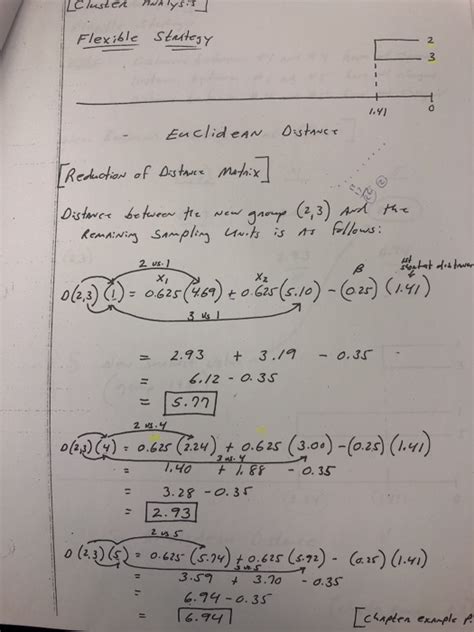 [Cluster Analysis]
Flexible Strategy
2
3
1.41
0
Euclidean Distance
[Reduction of Distance Matrix]
Distance between the new group (2,3) and the
Remaining Sampling Units is as follows:
2 vs. 1
X₁ X₂ β
shortest distance
D(2,3)(1) = 0.625(4.69) + 0.625(5.10) - (0.25)(1.41)
3 vs 1
= 2.93 + 3.19 - 0.35
= 6.12 - 0.35
= 5.77
2 vs. 4
D(2,3)(4) = 0.625(2.24) + 0.625(3.00) - (0.25)(1.41)
3 vs. 4
= 1.40 + 1.88 - 0.35
= 3.28 - 0.35
= 2.93
2 vs 5
D(2,3)(5) = 0.625(5.74) + 0.625(5.92) - (0.25)(1.41)
3 vs 5
= 3.59 + 3.70 - 0.35
= 6.94 - 0.35
= 6.94
[Chapter example P